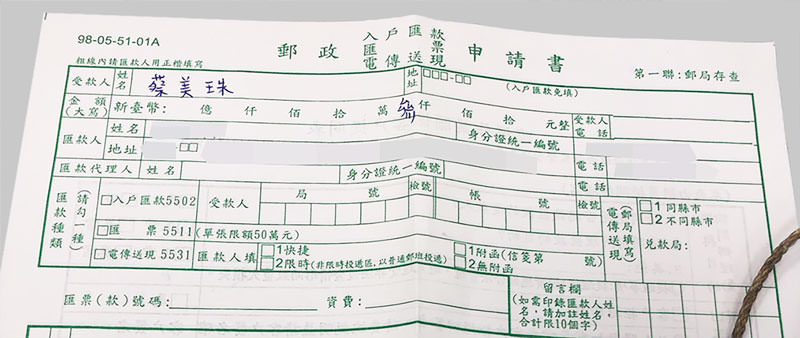 98-05-51-01A
郵政 入戶匯款 匯票 電傳送現 申請書
粗線內請匯款人用正楷填寫
第一聯:郵局存查
受款人 姓名 蔡美珠 地址 □□□-□□ (入戶匯款免填)
金額(大寫) 新臺幣: 億 仟 佰 拾 萬 仟 佰 拾 元整 受款人電話
匯款人 姓名 身分證統一編號
地址 □□ 電話
匯款代理人 姓名 身分證統一編號 電話
匯款種類 (請勾一種)
□入戶匯款5502 受款人 局 號 檢號 帳 號 檢號
□匯 票 5511 (單張限額50萬元)
□電傳送現 5531 匯款人填 □1快捷 □2限時(非限時投遞區,以普通郵班投遞) □1附函(信箋第 號) □2無附函
電傳送現 (郵局填寫) □1同縣市 □2不同縣市 兌款局:
匯票(款)號碼: 資費:
留言欄
(如需印錄匯款人姓名,請加註姓名,合計限10個字)